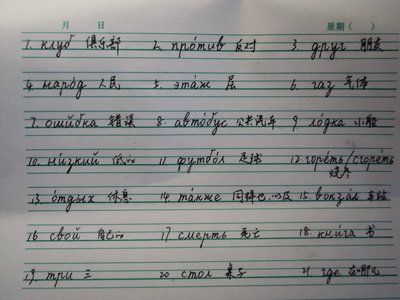 月 日 星期（ ）
1. клуб 俱乐部 2. про́тив 反对 3. друг 朋友
4. наро́д 人民 5. эта́ж 层 6. газ 气体
7. оши́бка 错误 8. авто́бус 公共汽车 9. ло́дка 小船
10. ни́зкий 低的 11. футбо́л 足球 12. горе́ть/сгоре́ть
烧着
13. о́тдых 休息 14. та́кже 同样也,以及 15. вокза́л 车站
16. свой 自己的 17. смерть 死亡 18. кни́га 书
19. три 三 20. стол 桌子 21. где 在哪儿